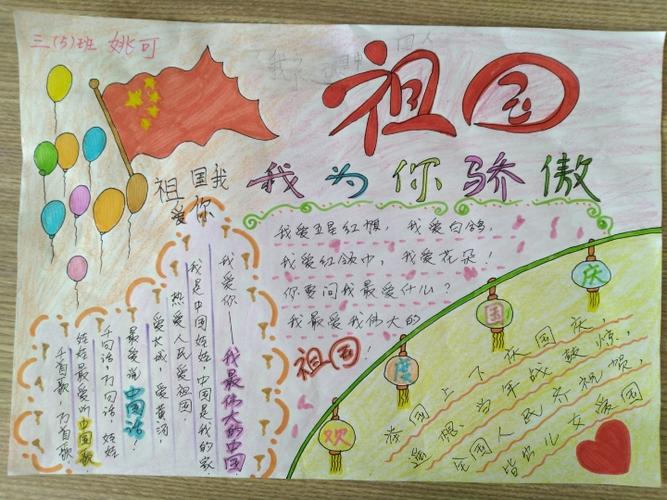 三(5)班 姚可
祖国
我为你骄傲
祖国我
爱你
我爱五星红旗，我爱白鸽，
我爱红领巾，我爱花朵！
你要问我最爱什么？
我最爱我伟大的
祖国！
我爱你——我最伟大的中国
我是中国娃娃，中国是我的家
热爱人民爱祖国，
爱长城，爱黄河，
最爱说中国话！
千句话，万句话，娃娃
娃娃最爱听中国歌
千首歌，万首歌
欢度国庆
举国上下庆国庆，
遥想当年战鼓惊，
全国人民齐祝贺，
皆出儿女爱国